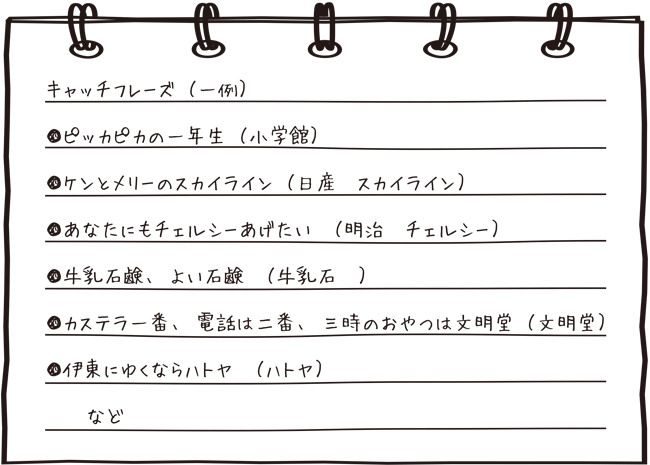 キャッチフレーズ（一例）
●ピッカピカの一年生（小学館）
●ケンとメリーのスカイライン（日産　スカイライン）
●あなたにもチェルシーあげたい　（明治　チェルシー）
●牛乳石鹸、よい石鹸　（牛乳石　）
●カステラ一番、電話は二番、三時のおやつは文明堂（文明堂）
●伊東にゆくならハトヤ　（ハトヤ）
など